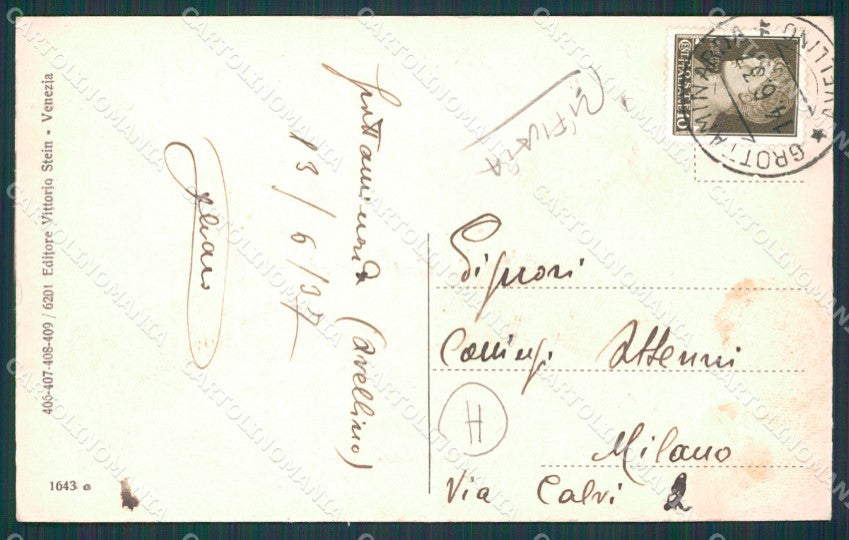 Grottaminarda (Avellino)
13/6/37
406-407-408-409 / 6201 Editore Vittorio Stein • Venezia
1643 G
POSTE ITALIANE
10
GROTTAMINARDA
AVELLINO
14.6.37
Signori
Milano
Via Calvi 2
H
CARTOLINOMANIA